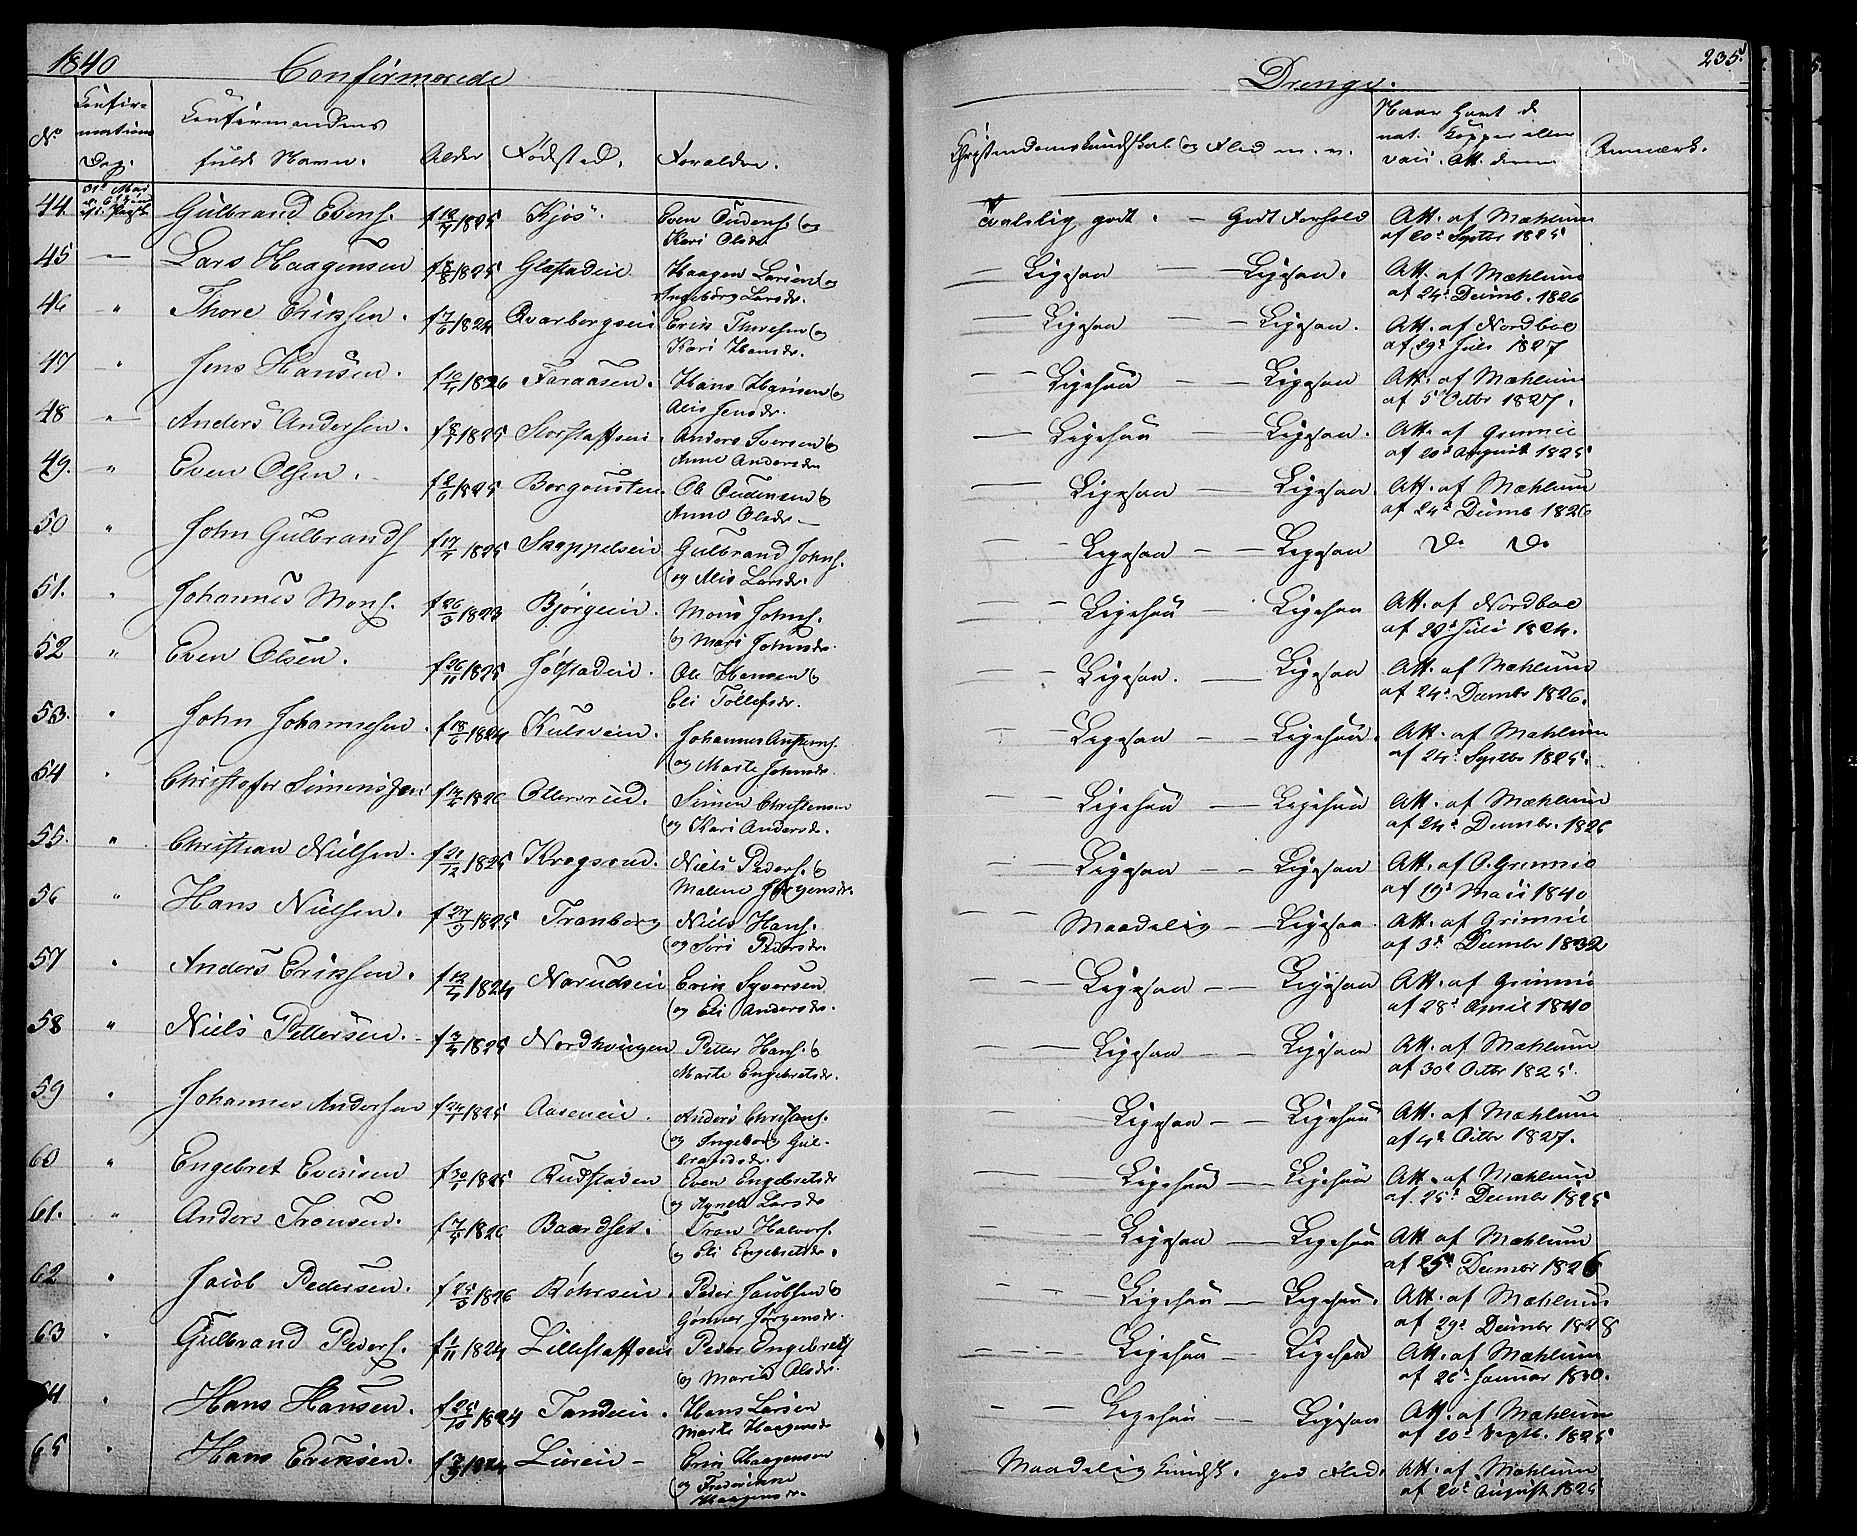 1840 Confirmerede Drenge. 235.
No Confirmations Dag. Confirmandens fulde Navn. Alder Fødsted. Forældre. Christendomskundskab og Flid m. v. Naar havt d. nat. Kopper eller vacc. Att. derom Anmærk.
44 Gulbrand Evens. f 1825 Kjos Even Oudens. og Kari Olsdr. Tvalelig godt. – Godt Forhold Att. af Mæhlum af 20d Septbr 1825
45 — Lars Haagensen f 1825 Glæstadeie Haagen Larsen og Ingeborg Larsdr. — Ligesaa — Ligesaa. Att. af Mæhlum af 24d Decemb. 1826
46 " Thore Eriksen. f 7/6 1824 Qvarbergseie Erik Thoresen og Kari Hansdr. — Ligesaa — Ligesaa. Att. af Nordboe af 29d Juli 1827
47 " Jens Hansen. f 1826 Faraasen. Hans Hansen og Alis Jensdr. — Ligesaa — Ligesaa Att. af Mæhlum af 5 Octbr 1827.
48 " Anders Andersen. f 1825 Storstaffseie. Anders Iversen og Anne Andersdr — Ligesaa — Ligesaa. Att. af Grimnie af 20d August 1825
49. " Even Olsen. f 1825 Borgousten. Ole Oudensen og Anne Olsdr — Ligesaa — Ligesaa. Att. af Mæhlum af 24d Decemb 1826
50 " John Gulbrands f 17/7 1825 Skappelseie Gulbrand Johns. og Alis Larsdr. — Ligesaa — Ligesaa Do Do
51. " Johannes Mons. f 26/3 1823 Bjørgeeie. Mons Johns. og Mari Johnsdr. — Ligesaa — Ligesaa Att. af Nordboe af 28d Juli 1824.
52 " Even Olsen. f 26/11 1825 Jølstadeie. Ole Hansen og Eli Tollefsdr. — Ligesaa. — Ligesaa Att. af Mæhlum af 24d Decembr 1826.
53. " John Johannesen f 18/6 1824 Kulsveeie. Johannes Austens. og Marte Johnsdr. — Ligesaa — Ligesaa. Att. af Mæhlum af 24d Septbr 1825.
54 " Christofer Simensen f 1826 Ollersrud. Simen Christensen og Kari Andersdr. — Ligesaa — Ligesaa Att. af Mæhlum af 24d Decembr. 1826
55. " Christian Nielsen. f 21/12 1825 Krogsrud. Niels Peders. og Malene Jørgensdr. — Ligesaa — Ligesaa Att. af O. Grimnie af 19d Maii 1840
56 " Hans Nielsen. f 27/9 1825 Tranberg Niels Hans. og Siri Pedersdr. — Maadelig — Ligesaa. Att. af Grimnie af 3d Decembr 1832
57 " Anders Eriksen. f 1824 Norudseie Erik Syversen og Eli Andersdr. — Ligesaa — Ligesaa Att. af Grimnie af 28d April 1840
58 " Niels Pettersen. f 1825 Nordhvingen Petter Hans. og Marte Engebretsdr. — Ligesaa — Ligesaa Att. af Mæhlum af 30d Octbr 1825.
59 " Johannes Andersen f 1825 Aaseneie. Anders Christians. og Ingeborg Gulbrandsdr. — Ligesaa — Ligesaa Att. af Mæhlum af 4d Octbr 1827.
60 " Engebret Evensen f 1825 Rudstaden Even Engebretsdr og Agnete Larsdr — Ligesaa — Ligesaa Att. af Mæhlum af 25d Decembr 1825
61. " Anders Tronsen. f 1826 Baardset. Tron Halvors. og Eli Engebretsdr. — Ligesaa — Ligesaa Att af Mæhlum af 25d Decembr 1826
62 " Jacob Pedersen. f 1826 Røhrseie. Peder Jacobsen og Gunner Jørgensdr. — Ligesaa — Ligesaa. Att. af Mæhlum af 29d Decembr 1828
63 " Gulbrand Peders. f 1/11 1824 Lillestaffseie Peder Engebrets og Maria Olsdr. — Ligesaa — Ligesaa Att. af Mæhlum af 26d Januar 1830.
64 " Hans Hansen. f 1824 Tandeeie. Hans Larsen Marte Haagensdr — Ligesaa — Ligesaa Att. af Mæhlum af 20d Septb. 1825
65 " Hans Eriksen. f 1824 Liereie – Erik Haagensen og Frederikke Haagensdr. Maadelig Kundsk. god Flid. Att. af Mæhlum af 20d August 1825